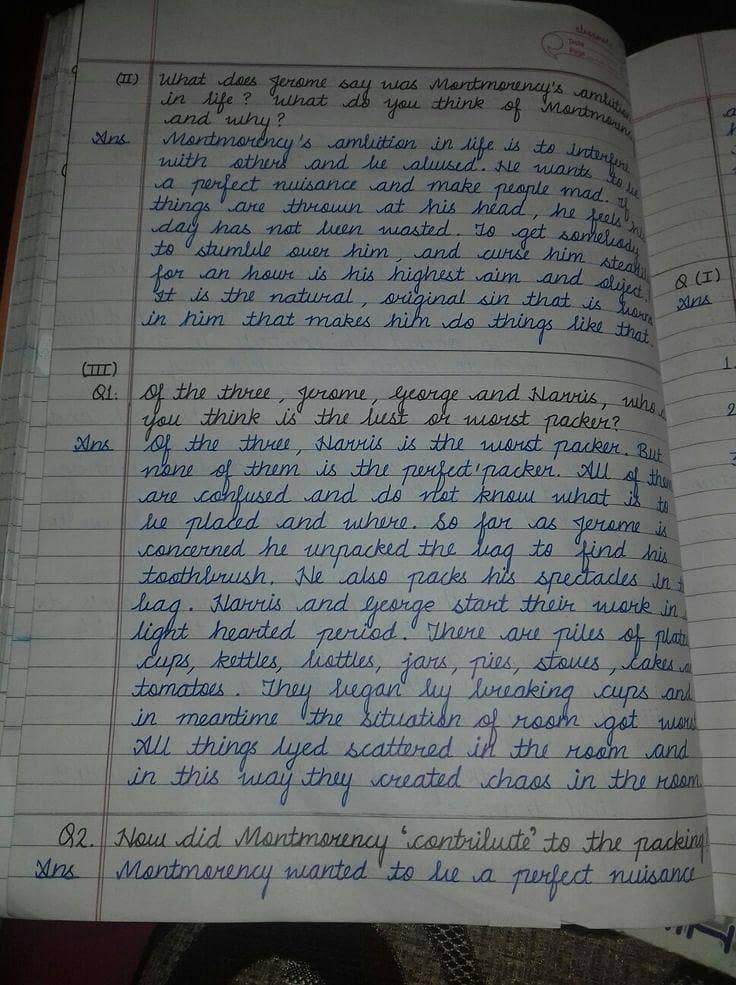 classmate
Date
Page
(II) What does Jerome say was Montmorency's
in life? What do you think of
and why?
Ans Montmorency's ambition in life is to interfere
with others and be abused. He wants to be
a perfect nuisance and make people mad. If
things are thrown at his head, he feels his
day has not been wasted. To get somebody
to stumble over him, and curse him
for an hour is his highest aim and object.
It is the natural, original sin that is born
in him that makes him do things like that.
(III)
Q1. Of the three, Jerome, George and Harris, who
you think is the best or worst packer?
Ans Of the three, Harris is the worst packer. But
none of them is the perfect packer. All of
are confused and do not know what is to
be placed and where. So far as Jerome is
concerned he unpacked the bag to find his
toothbrush. He also packs his spectacles in
bag. Harris and George start their work in
light hearted period. There are piles of
cups, kettles, bottles, jars, pies, stoves, cakes
tomatoes. They began by breaking cups and
in meantime the situation of room got
All things lyed scattered in the room and
in this way they created chaos in the room
Q2. How did Montmorency 'contribute' to the packing
Ans Montmorency wanted to be a perfect nuisance
Q (I)
Ans
1.
2
3